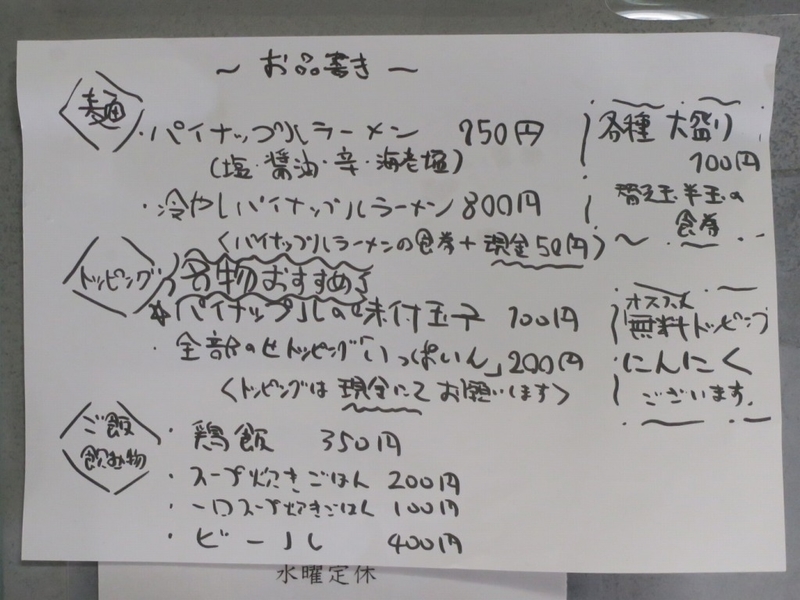 ～ お品書き ～
麺
・パイナップルラーメン 750円
(塩・醤油・辛・海老塩)
・冷やしパイナップルラーメン 800円
〈パイナップルラーメンの食券+現金50円〉
各種 大盛り
100円
替え玉、半玉の
食券
トッピング
名物おすすめ!
☆パイナップルの味付玉子 100円
・全部のせトッピング「いっぱいん」200円
〈トッピングは現金にてお願いします〉
オススメ
無料トッピング
にんにく
ございます.
ご飯
飲み物
・鶏飯 350円
・スープ炊きごはん 200円
・一口スープ炊きごはん 100円
・ビール 400円
水曜定休